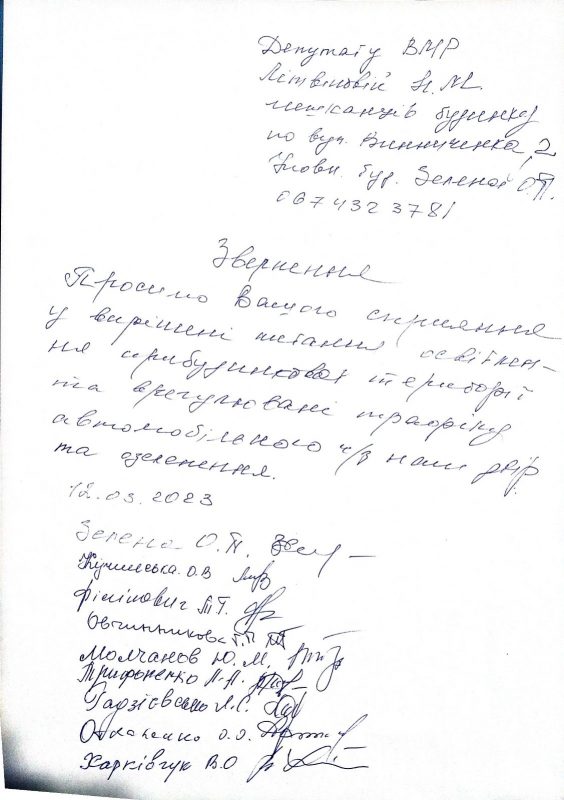 Депутату ВМР
Літвіновій Н.М.
мешканців будинку
по вул. Винниченка, 2
Уповн. буд. Зеленої О.П.
067 432 3781
Звернення
Просимо Вашого сприяння
у вирішені питання освітлен-
ня прибудинкової території
та врегулювані трафіку
автомобільного ч/з наш двір
та озеленення.
12.03.2023
Зелена О.П.
О.В
Філіпович М.Т.
Овчиннікова Т.П.
Молчанов Ю.М.
Трифоненко Н.А.
Л.С.
О.О.
Харківчук В.О